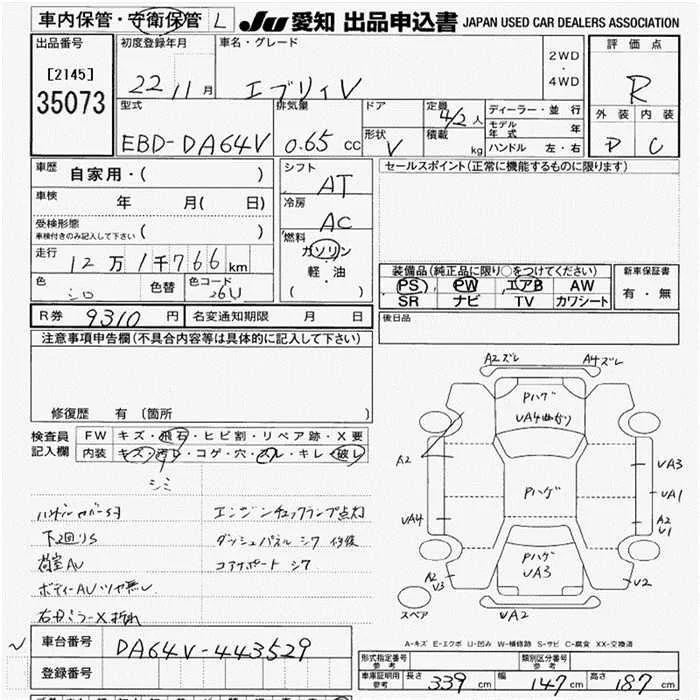 車内保管・守衛保管 L JU 愛知 出品申込書 JAPAN USED CAR DEALERS ASSOCIATION
出品番号 初度登録年月 車名・グレード 評価点
[2145] 22 11月 エブリィV 2WD・4WD R
35073 型式 排気量 ドア 定員 4/2人 ディーラー・並行 外装 内装
モデル年式 年
EBD-DA64V 0.65cc 形状 V 積載 kg ハンドル 左・右 D C
車歴 自家用・( ) シフト AT セールスポイント(正常に機能するものに限ります)
車検 年 月( 日) 冷房 AC
受検形態
車検付きのみ記入して下さい ( ) 燃料 ガソリン
走行 12万1千766km 軽・油 装備品(純正品に限り○をつけてください) 新車保証書
色 シロ 色替 色コード 26U ( ) PS PW エアB AW 有・無
SR ナビ TV カワシート
R券 9310円 名変通知期限 月 日 後日品
注意事項申告欄(不具合内容等は具体的に記入して下さい)
A2ズレ A4ズレ
Pハゲ
修復歴 有 〔箇所 〕
検査員記入欄 FW キズ・飛石・ヒビ割・リペア跡・X要
内装 キズ・汚レ・コゲ・穴・スレ・キレ・破レ
シミ
A2 Pハゲ UA3
UA1
UA4 A2 U1
エンジンチェックランプ点灯
下2回りS ダッシュパネル シワ 修後
荷室AU コアサポート シワ
ボディーAUツヤ無し
右ドミラーX折れ
Pハゲ
UA3
A2 U3 U2
スペア UA2
A-キズ E-エクボ U-凹み W-補修跡 S-サビ C-腐食 XX-交換済
車台番号 DA64V-443529
登録番号
形式指定番号 参考 類別区分番号 参考
車庫証明用 参考 長さ 339cm 幅 147cm 高さ 187cm